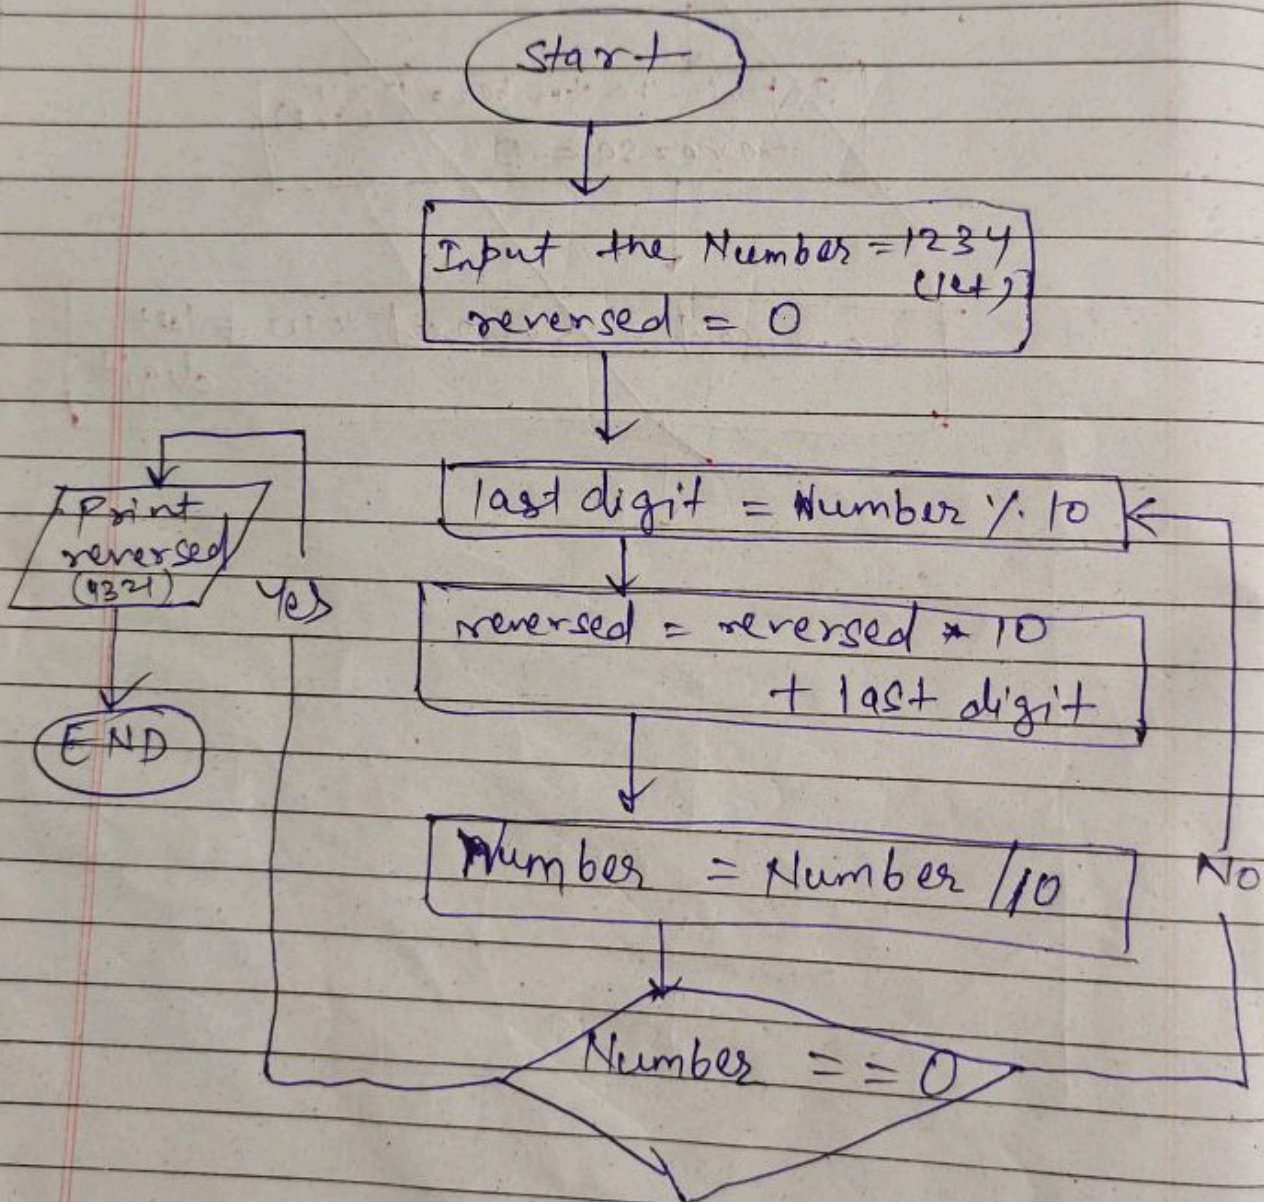 Start
Input the Number = 1234
(let)
reversed = 0
last digit = Number % 10
reversed = reversed * 10
+ last digit
Number = Number / 10
Number == 0
No
Yes
Print
reversed
(4321)
END